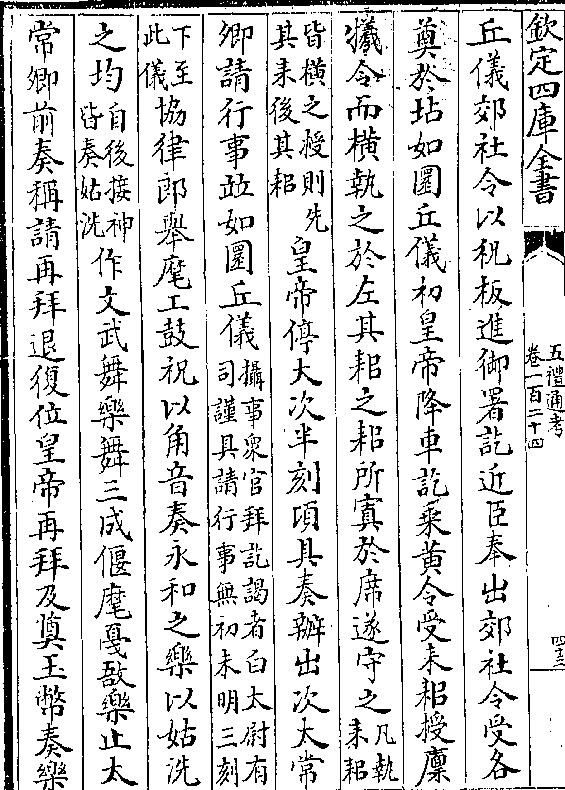 欽定四庫全書
五禮通考
卷一百二十四
四十三
丘儀郊社令以祝板進御署訖近臣奉出郊社令受各
奠於坫如圜丘儀初皇帝降車訖乘黃令受耒耜授廩
犧令而橫執之於左其耜之耜所寘於席遂守之凡執耒耜
皆橫之授則先其耒後其耜皇帝停大次半刻頃具奏辦出次太常
卿請行事並如圜丘儀攝事衆官拜訖謁者白太尉有司謹具請行事無初未明三刻
下至此儀協律郎舉麾工鼓柷以角音奏永和之樂以姑洗
之均自後接神皆奏姑洗作文武舞樂舞三成偃麾戞敔樂止太
常卿前奏稱請再拜退復位皇帝再拜及奠玉幣奏樂